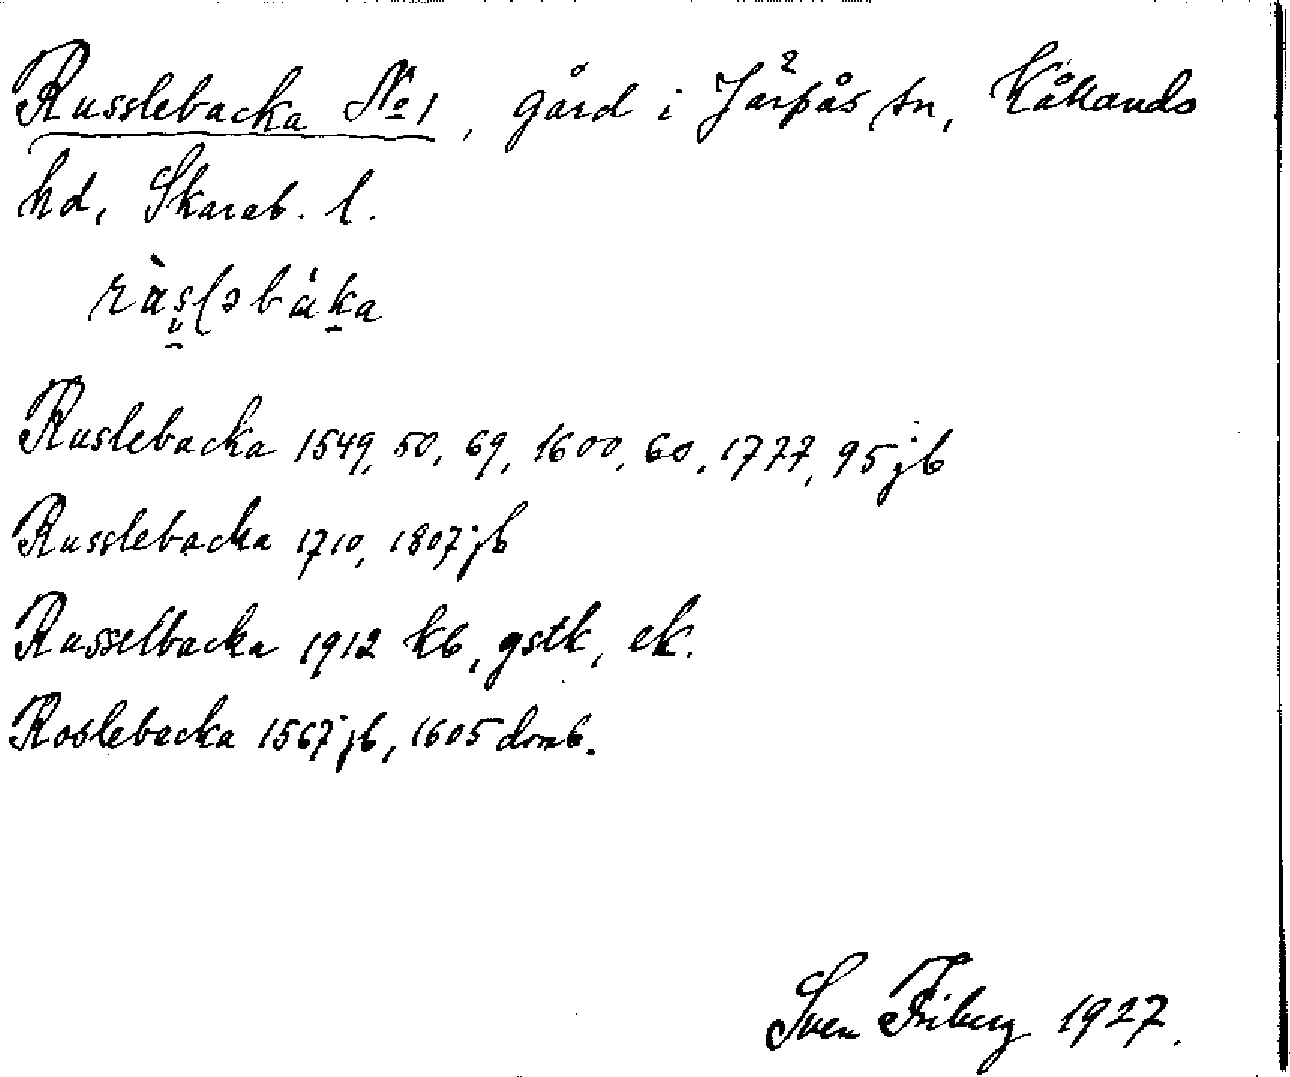 Russlebacka No 1, gård i Järpås sn, Kållands
hd, Skarab. l.
Ruslebacka 1549, 50, 69, 1600, 60, 1727, 95 jb
Russlebacka 1710, 1807 jb
Russelbacka 1912 kb, gstk, ek.
Roslebacka 1567 jb, 1605 domb.
Sven Friberg 1927.